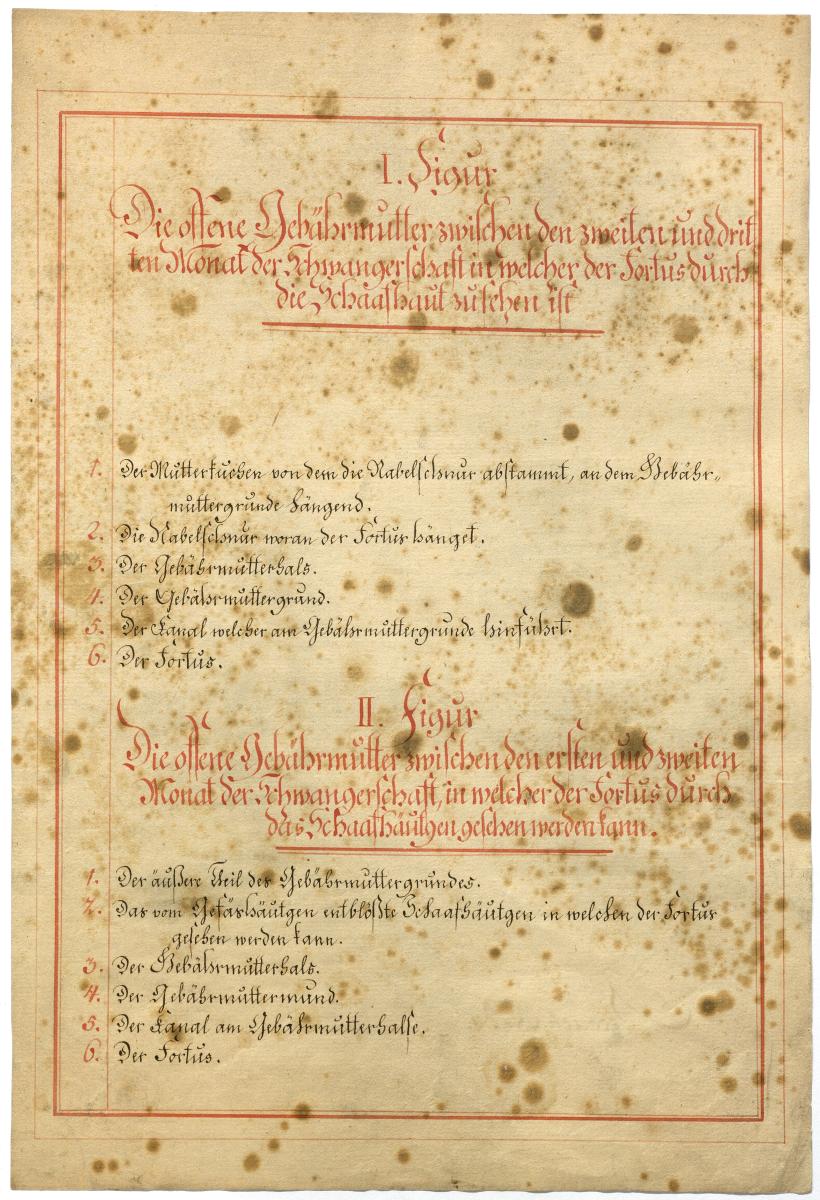 I. Figur
Die offene Gebährmutter zwischen den zweiten und drit
ten Monat der Schwangerschaft in welcher der Fortus durch
die Schaafhaut zu sehen ist
1. Der Mutterkuchen von dem die Nabelschnur abstammt, an dem Gebähr-
muttergrunde hängend.
2. Die Nabelschnur woran der Fortus hänget.
3. Der Gebährmutterhals.
4. Der Gebährmuttergrund.
5. Der Kanal welcher am Gebährmuttergrunde hinführt.
6. Der Fortus.
II. Figur
Die offene Gebährmutter zwischen den ersten und zweiten
Monat der Schwangerschaft, in welcher der Fortus durch
das Schaafhäutgen gesehen werden kann.
1. Der äußere Theil des Gebährmuttergrundes.
2. Das vom Gefäshäutgen entblößte Schaafhäutgen in welchen der Fortus
gesehen werden kann.
3. Der Gebährmutterhals.
4. Der Gebährmuttermund.
5. Der Kanal am Gebährmutterhalse.
6. Der Fortus.